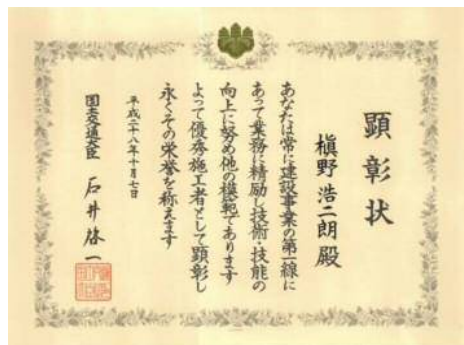 顕彰状
槇野浩二朗殿
あなたは常に建設事業の第一線に
あって業務に精励し技術・技能の
向上に努め他の模範であります
よって優秀施工者として顕彰し
永くその栄誉を称えます
平成二十八年十月七日
国土交通大臣 石井啓一